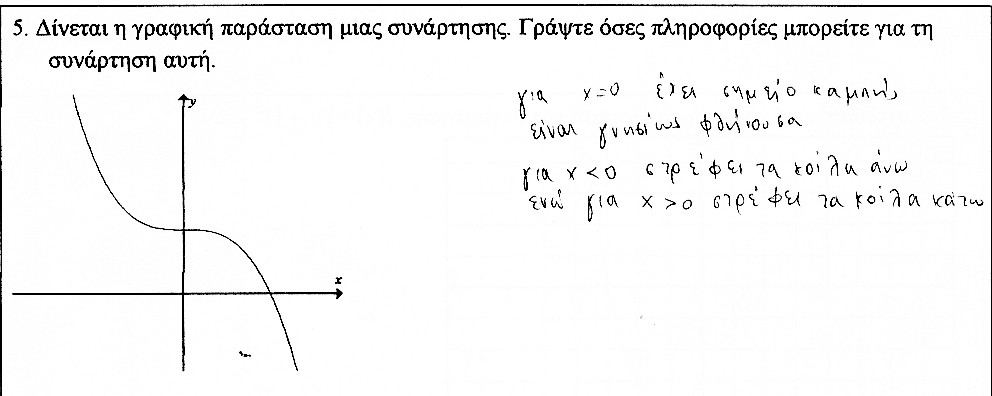 5. Δίνεται η γραφική παράσταση μιας συνάρτησης. Γράψτε όσες πληροφορίες μπορείτε για τη
συνάρτηση αυτή.
y
x
για x=0 έχει σημείο καμπής
είναι γνησίως φθίνουσα
για x<0 στρέφει τα κοίλα άνω
ενώ για x>0 στρέφει τα κοίλα κάτω